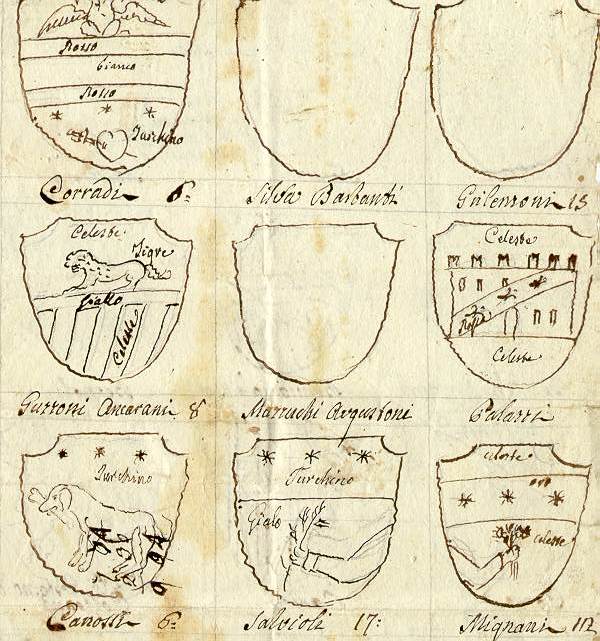 Rosso
bianco
Rosso
Turchino
Corradi 6:
Silva Barbanti
Grilenzoni 15
Celeste
Tigre
Giallo
Celeste
Celeste
Rosso
Celeste
Guzzoni Ancarani 8
Marruchi Argustoni
Palazzi
Turchino
Turchino
Gialo
celeste
oro
celeste
Canossa 6:
Salvioli 17:
Mignani